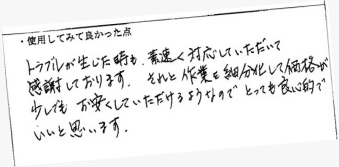 ・使用してみて良かった点
トラブルが生じた時も、素速く対応していただいて
感謝しております。それと作業を細分化して価格が
少しでもお安くしていただけるようなのでとっても良心的で
いいと思います。